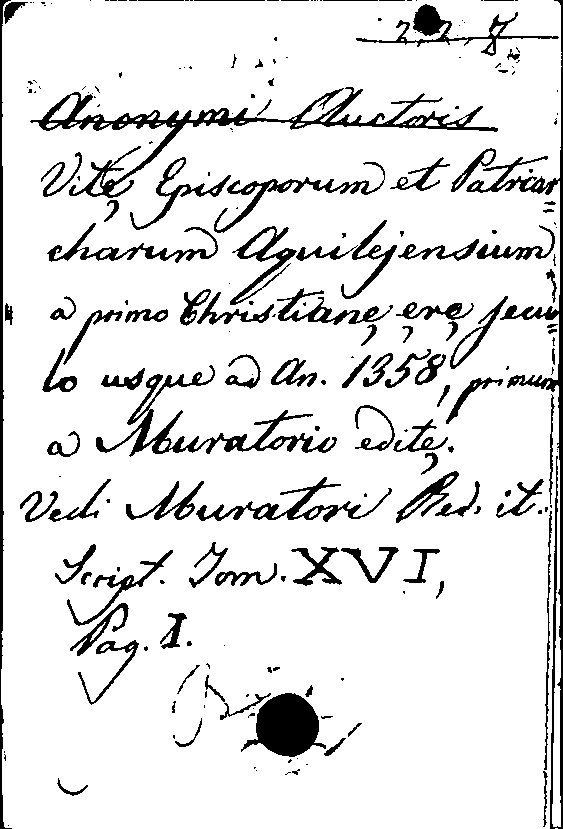 2.2.7
Anonymi Auctoris
Vitę Episcoporum et Patriar=
charum Aquilejensium
a primo Christianę ęrę secu=
lo usque ad An. 1358, primum
a Muratorio editę.
Vedi Muratori Red. it.
Script. Tom. XVI,
Pag. I.